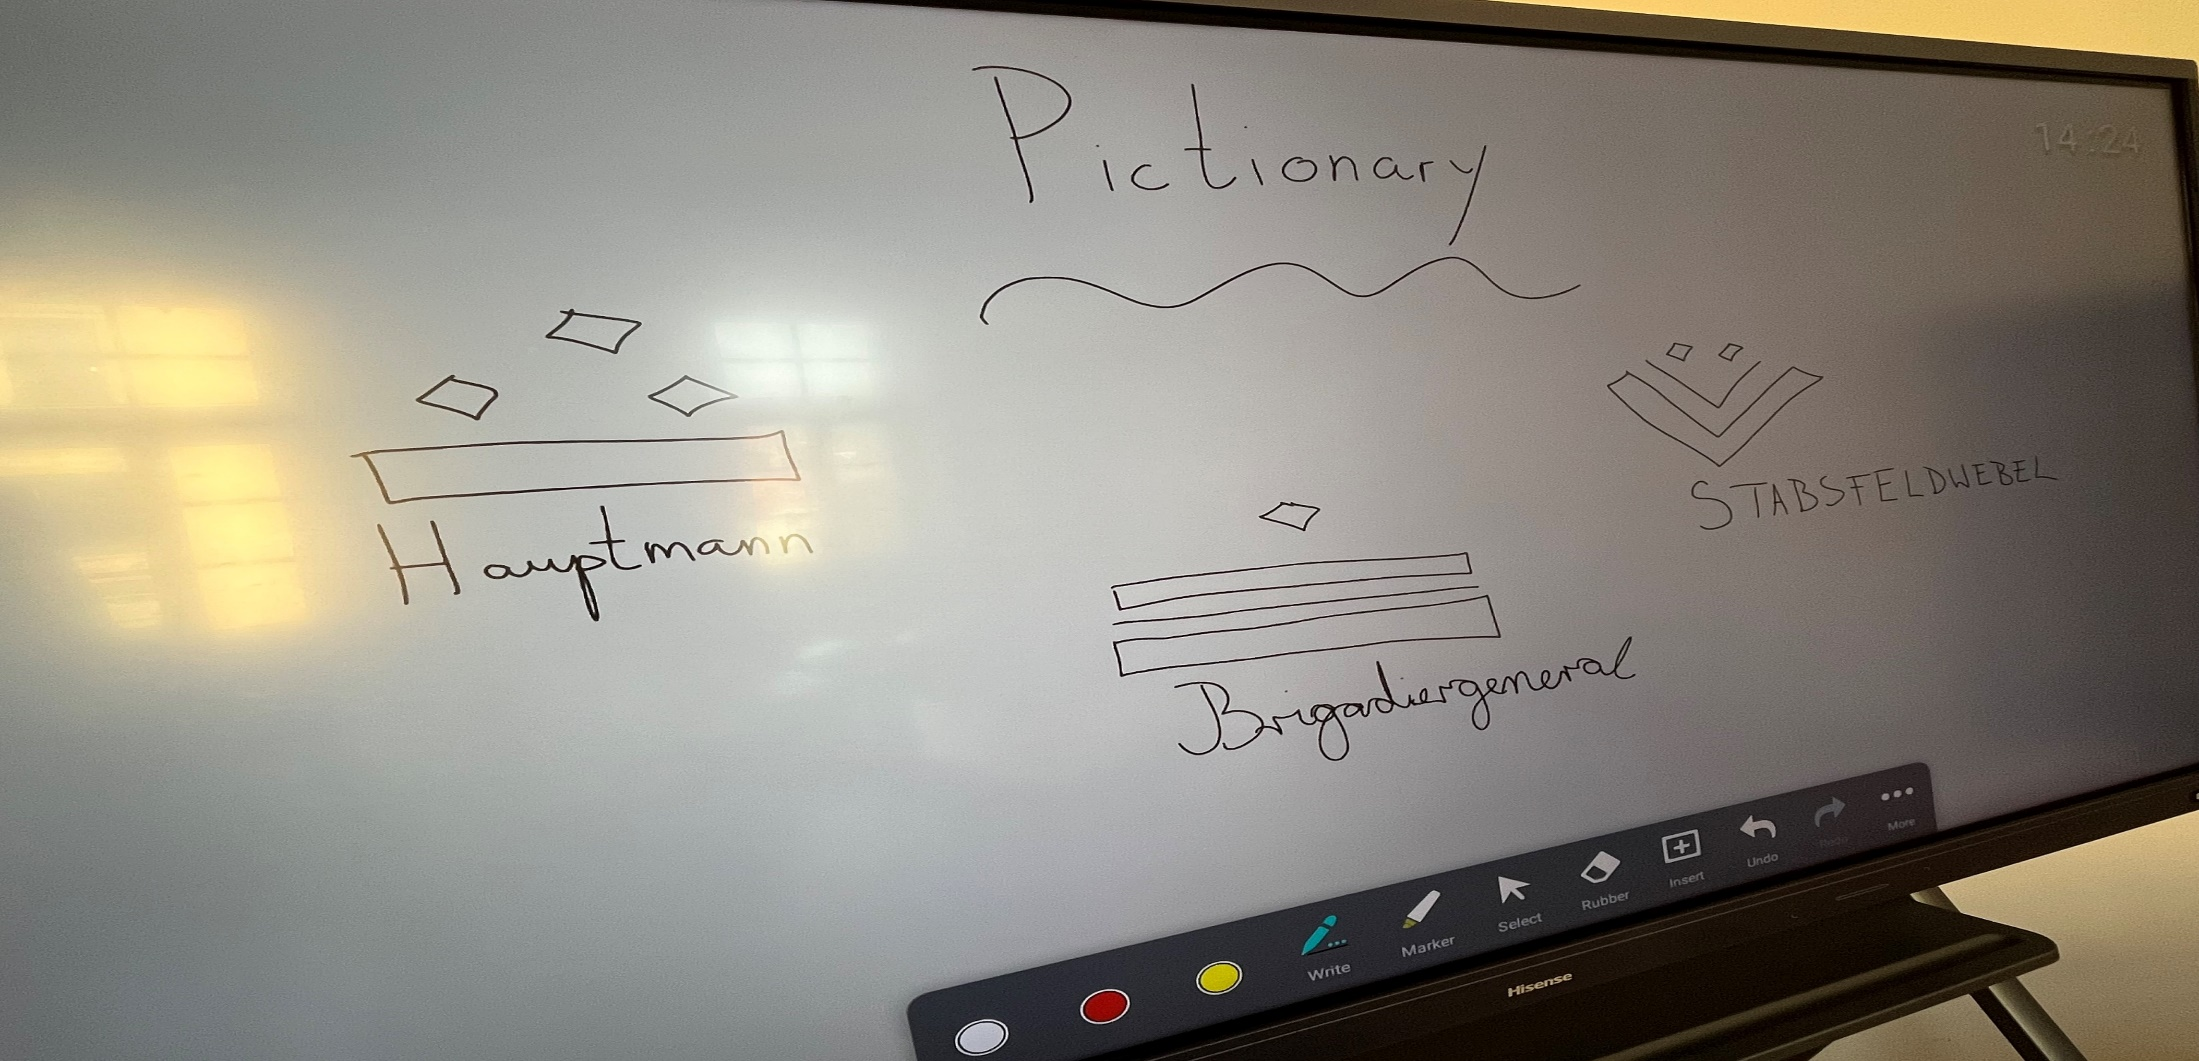 Pictionary
14:24
Hauptmann
STABSFELDWEBEL
Brigadiergeneral
Write
Marker
Select
Rubber
Insert
Undo
Redo
More
Hisense